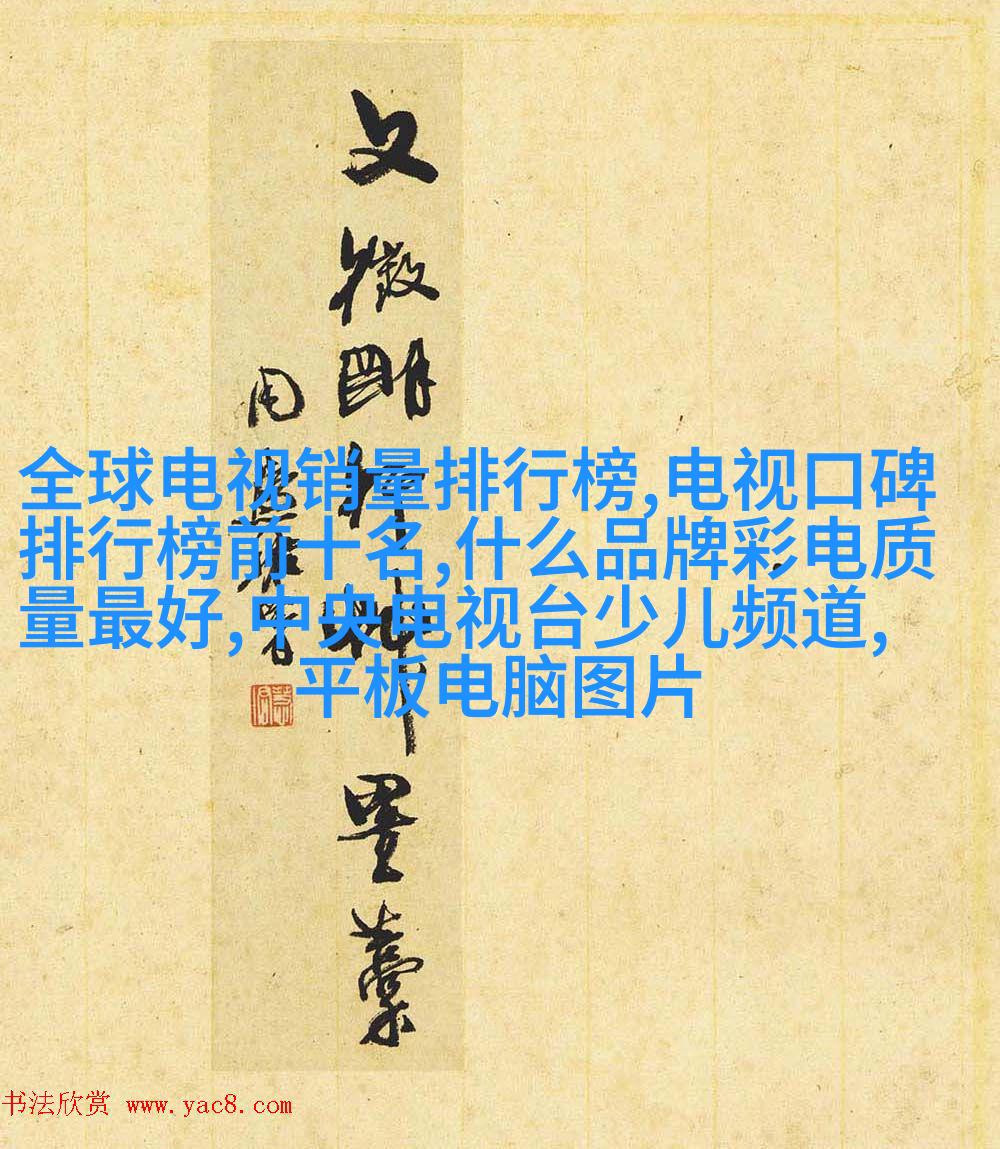 文徵明墨藁
全球电视销量排行榜,电视口碑
排行榜前十名,什么品牌彩电质
量最好,中央电视台少儿频道,
平板电脑图片
书法欣赏 www.yac8.com